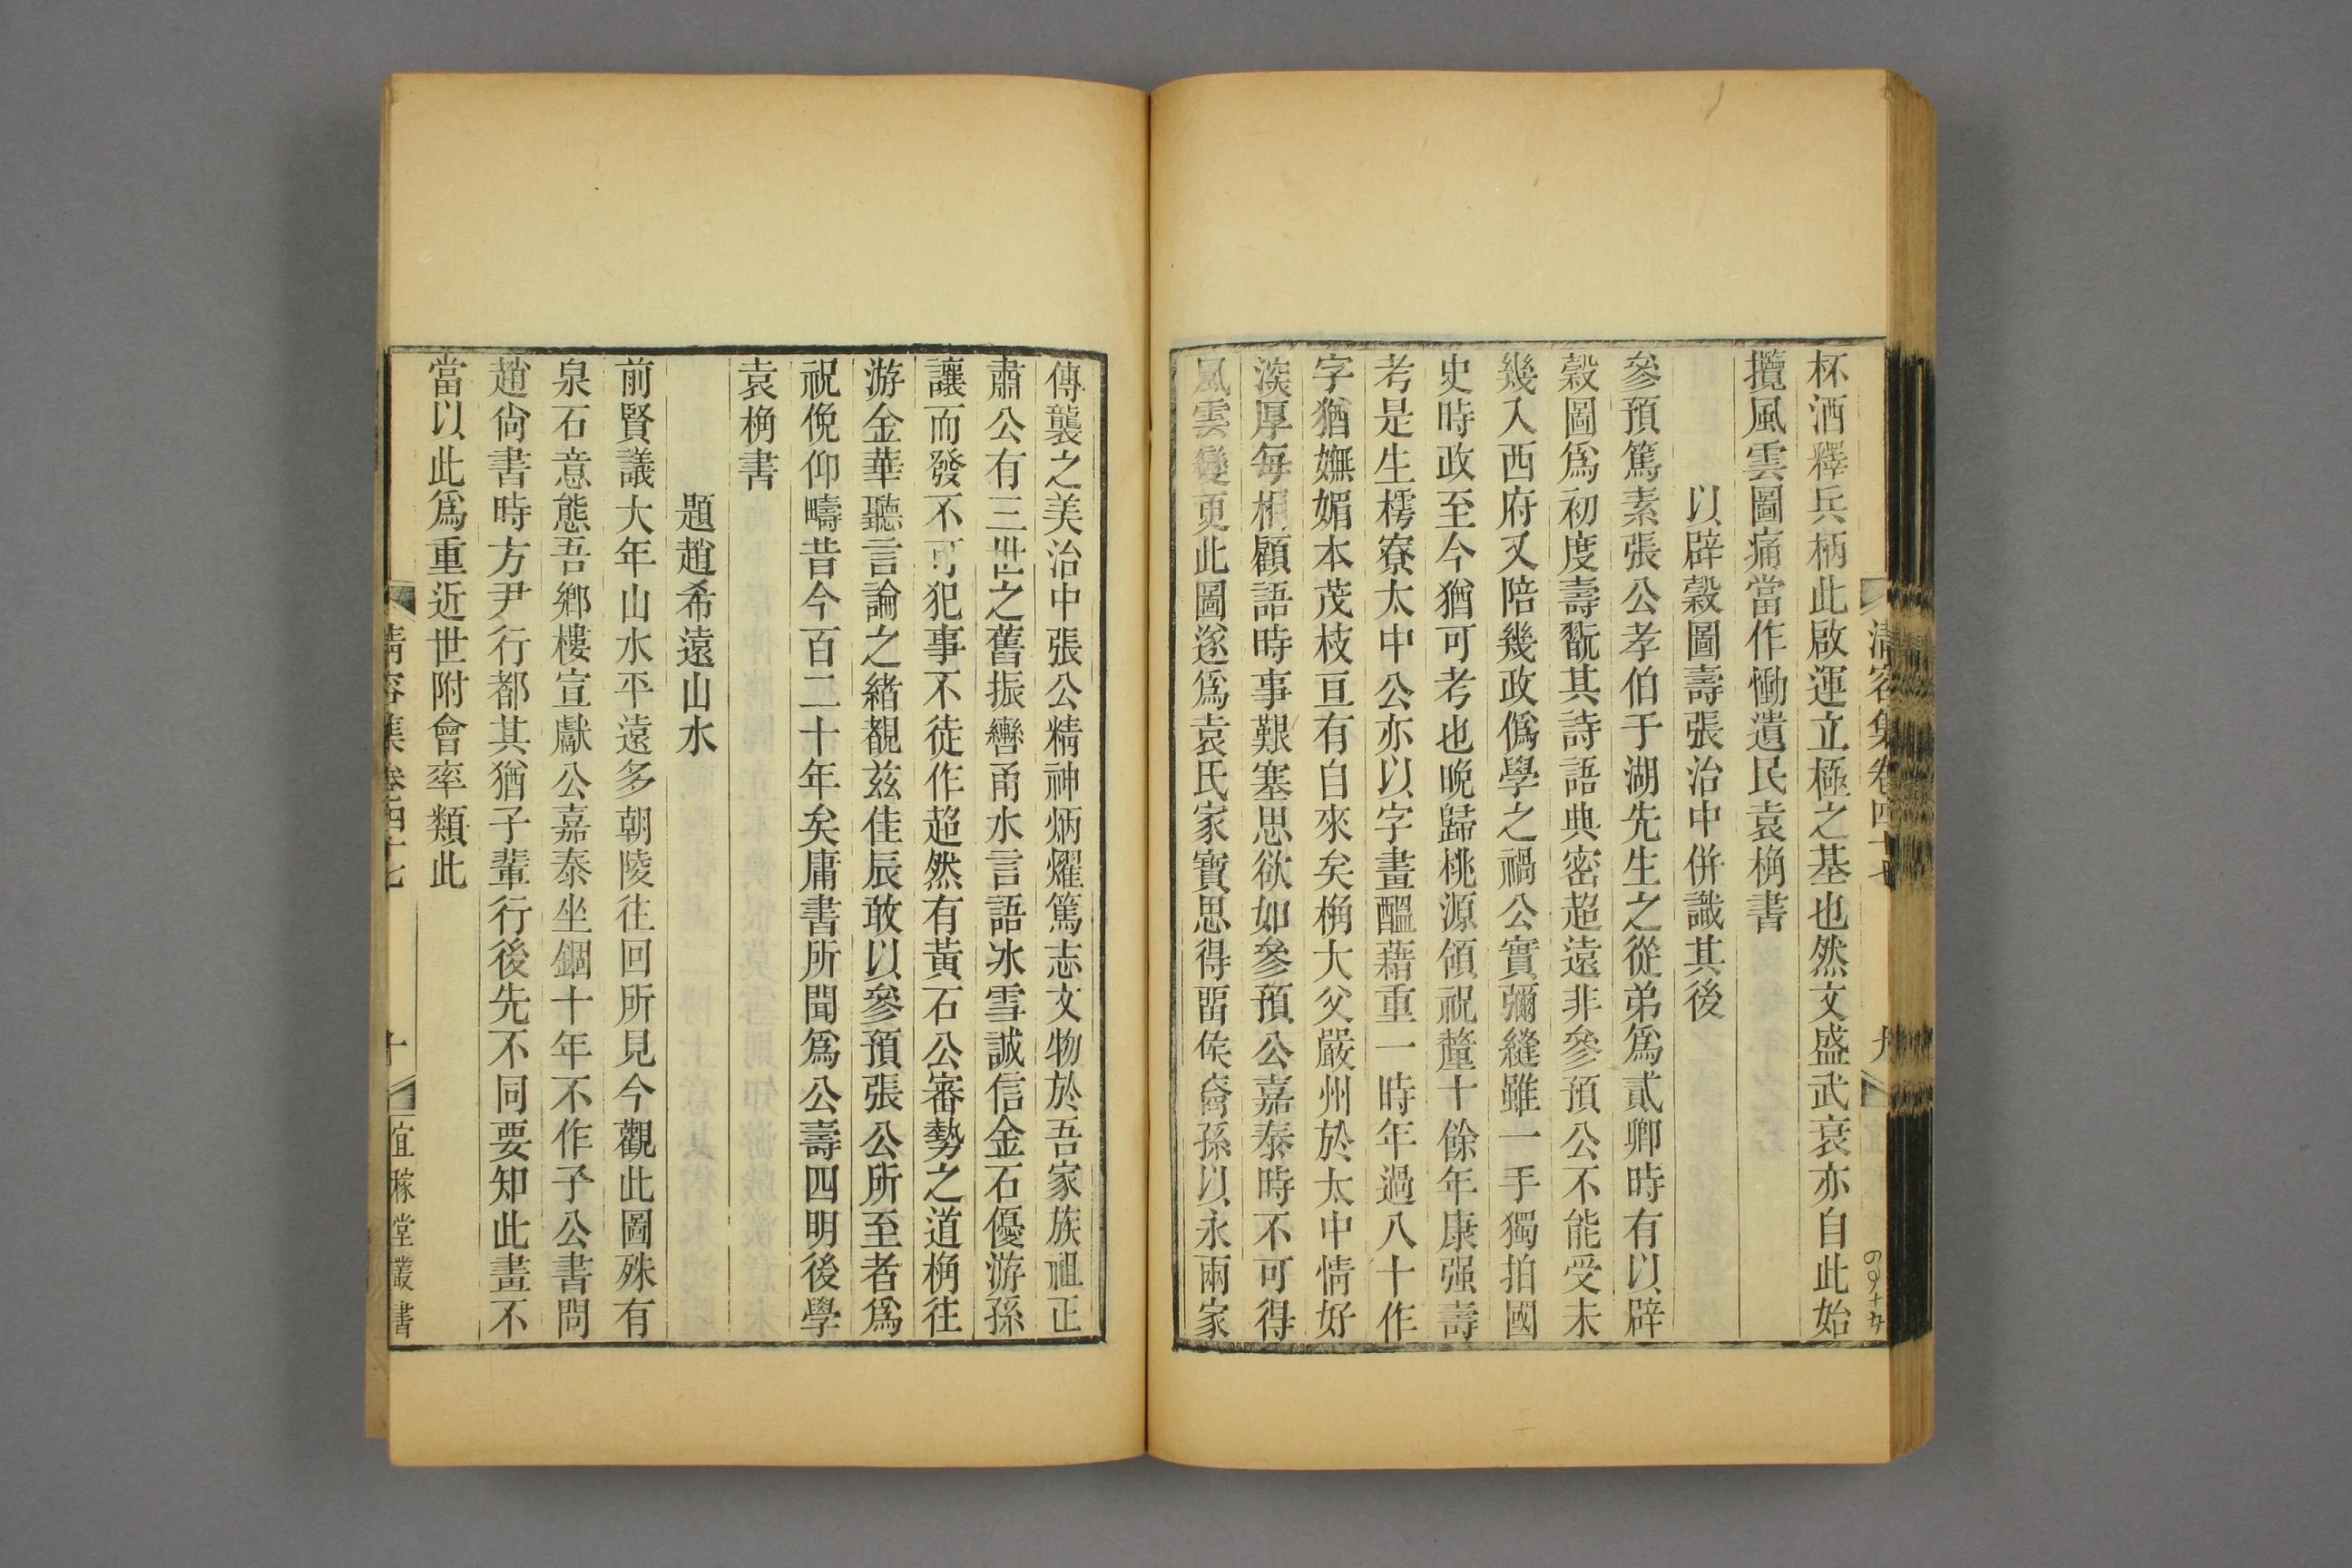 杯酒釋兵柄此啟運立極之基也然文盛武衰亦自此始
攬風雲圖痛當作慟遺民袁桷書
以辟穀圖壽張治中併識其後
參預篤素張公孝伯于湖先生之從弟爲貳卿時有以辟
穀圖爲初度壽翫其詩語典密超遠非參預公不能受未
幾入西府又陪幾政僞學之禍公實彌縫雖一手獨拍國
史時政至今猶可考也晚歸桃源領祝釐十餘年康强壽
考是生樗寮太中公亦以字畫醞藉重一時年過八十作
字猶嫵媚本茂枝亘有自來矣桷大父嚴州於太中情好
淡厚每相顧語時事艱塞思欲如參預公嘉泰時不可得
風雲變更此圖遂爲袁氏家寶思得畱矦裔孫以永兩家
清容集卷四十七
九
傳襲之美治中張公精神炳燿篤志文物於吾家族祖正
肅公有三世之舊振轡甬水言語冰雪誠信金石優游孫
讓而發不可犯事不徒作超然有黃石公審勢之道桷往
游金華聽言論之緒覩兹佳辰敢以參預張公所至者爲
祝俛仰疇昔今百二十年矣庸書所聞爲公壽四明後學
袁桷書
題趙希遠山水
前賢議大年山水平遠多朝陵往回所見今觀此圖殊有
泉石意態吾鄉樓宣獻公嘉泰坐錮十年不作予公書問
趙尙書時方尹行都其猶子輩行後先不同要知此畫不
當以此爲重近世附會率類此
清容集卷四十七
十
宜稼堂叢書